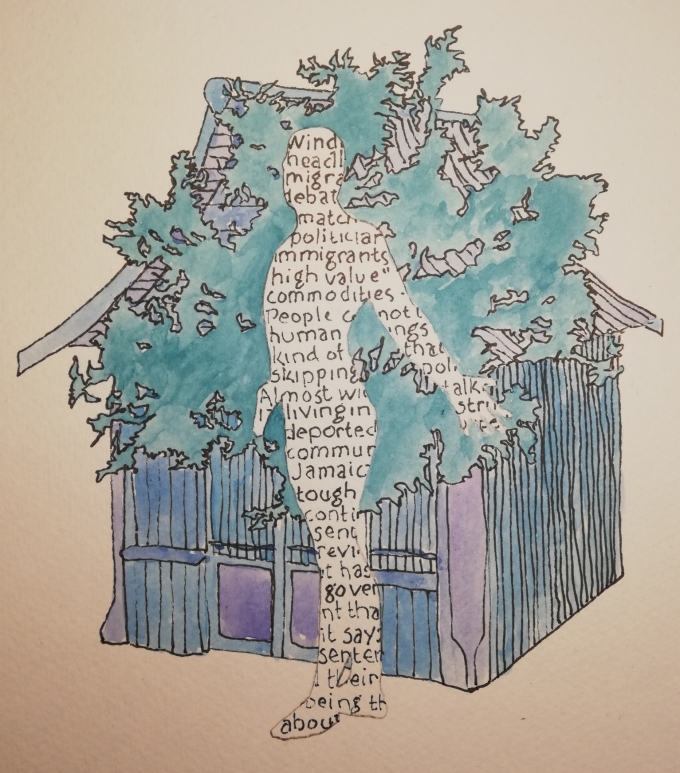 Wind
head
migra
debat
match
politician
immigrants
high value"
commodities.
People c not t
human ings
kind of that
skipping poli
Almost wi talk
living in stru
deported
commun
Jamaic
tough
contin
sent
revi
t has
gover
nt tha
it says
senten
their
being th
about